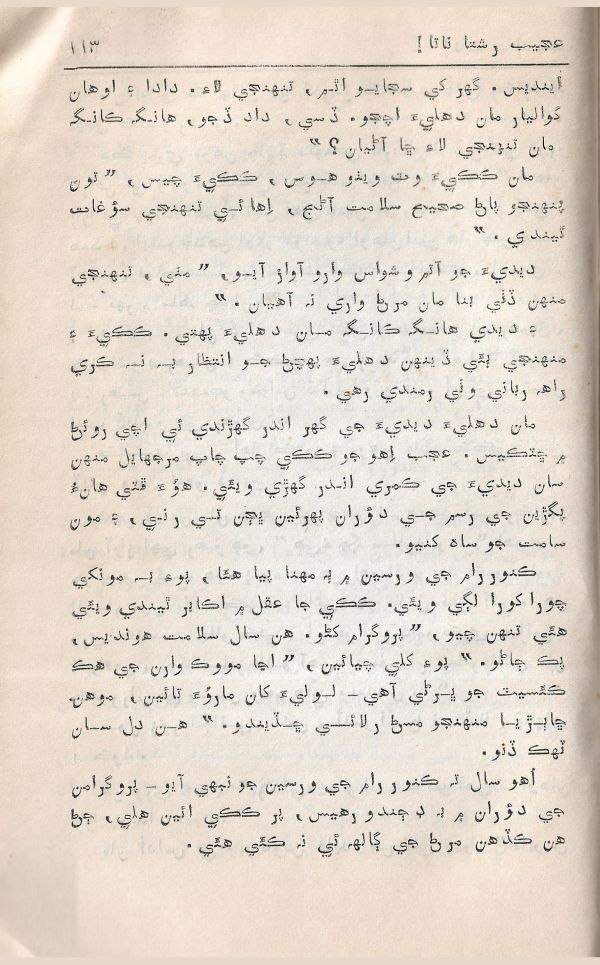 عجيب رشتا ناتا! ١١٣
اينديس. گهر کي سجايو اٿم، تنهنجي لاءِ. دادا ۽ اوهان
گواليار مان دهليءَ اچجو. ڏسي، داد ڏجو، هانگ کانگ
مان تنهنجي لاءِ ڇا آڻيان؟”
مان ڪڪيءَ وٽ ويٺو هوس، ڪڪيءَ چيس، ”تون
پنهنجو پاڻ صحيح سلامت آڻج، اِهائي تنهنجي سؤغات
ٿيندي.“
ديديءَ جو آتم وشواس وارو آواز آيو، ”مٺي، تنهنجي
منهن ڏٺي بنا مان مرڻ واري نه آهيان.“
۽ ديدي هانگ کانگ مان دهليءَ پهتي. ڪڪيءَ ۽
منهنجي ٻئي ڏينهن دهليءَ پهچڻ جو انتظار به نه ڪري
راهه رباني وٺي رمندي رهي.
مان دهليءَ ديديءَ جي گهر اندر گهڙندي ئي اچي روئڻ
۾ ڇٽڪيس. عجب اِهو جو ڪڪي چپ چاپ مرجهايل منهن
سان ديديءَ جي ڪمري اندر گهڙي ويئي. هوءَ ڦٽي هاڻُ
پڳڙين جي رسم جي دؤران پهرئين ڀڃن تي رني، ۽ مون
سامت جو ساهه کنيو.
ڪنور رام جي ورسين ۾ ٻه مهنا پيا هئا، پوءِ به مونکي
چورا کورا لڳي ويئي. ڪڪي جا عقل ۾ اڪابر ٿيندي ويئي
هئي تنهن چيو، ”پروگرام کڻو. هن سال سلامت هونديس،
پڪ ڄاڻو.“ پوءِ کلي چيائين، ”اڇا مووڪ وارن جي هڪ
ڪئسيٽ جو ڀرڻي آهي – لوليءَ کان ماروُءَ تائين، موهن
ڇاٻڙيا منهنجو مسڻ رلائي ڇڏيندو.“ هن دل سان
ٽهڪ ڏنو.
اُهو سال ته ڪنور رام جي ورسين جو نڀي آيو – پروگرامن
جي دؤران ۾ به ڊڄندو رهيس، پر ڪڪي ائين هلي، ڄڻ
هن ڪڏهن مرڻ جي ڳالهه ئي نه ڪئي هئي.